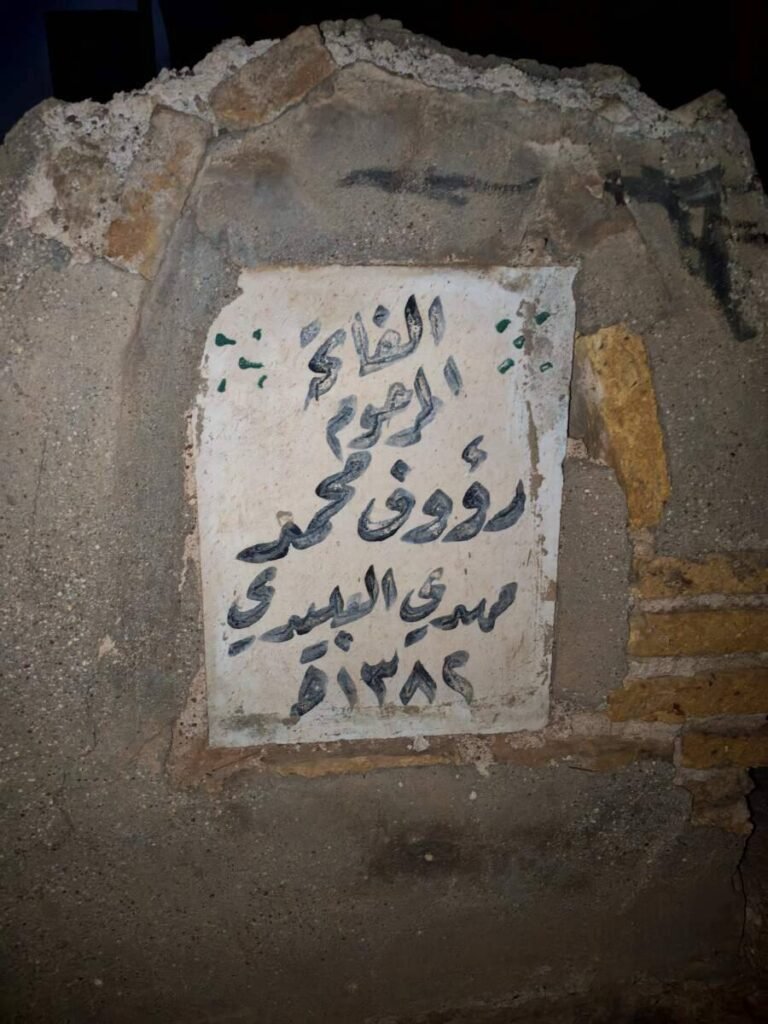 الفاتحة
المرحوم
رؤوف محمد
مهدي العبيدي
١٣٨٢